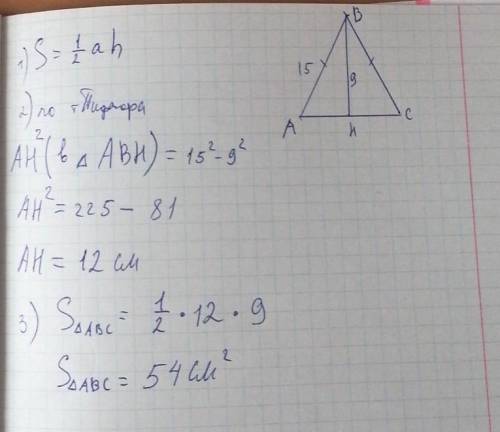 1) S = 1/2 a h
2) по т Пифагора
AH² (в △ ABH) = 15² - 9²
AH² = 225 - 81
AH = 12 см
3) S△ABC = 1/2 · 12 · 9
S△ABC = 54 см²
B
15
9
A
H
C